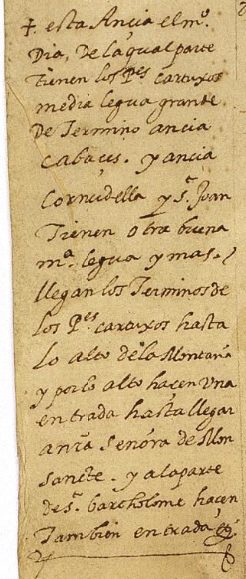 + esta Ancia el mº.
Dia, de la qual parte
tienen los Pes cartuxos
media legua grande
De Termino ancia
Cabacis. y ancia
Cornudella y sª. Joan
Tienen otra buena
mª. legua y mas.
llegan los Terminos de
los Pes. cartuxos hasta
Lo alto de la Montaña
y por lo alto hacen una
entrada hasta llegar
ancia Senora de Mon
sancte. y a la parte
de sª. bartholome hacen
Tambien entrada,